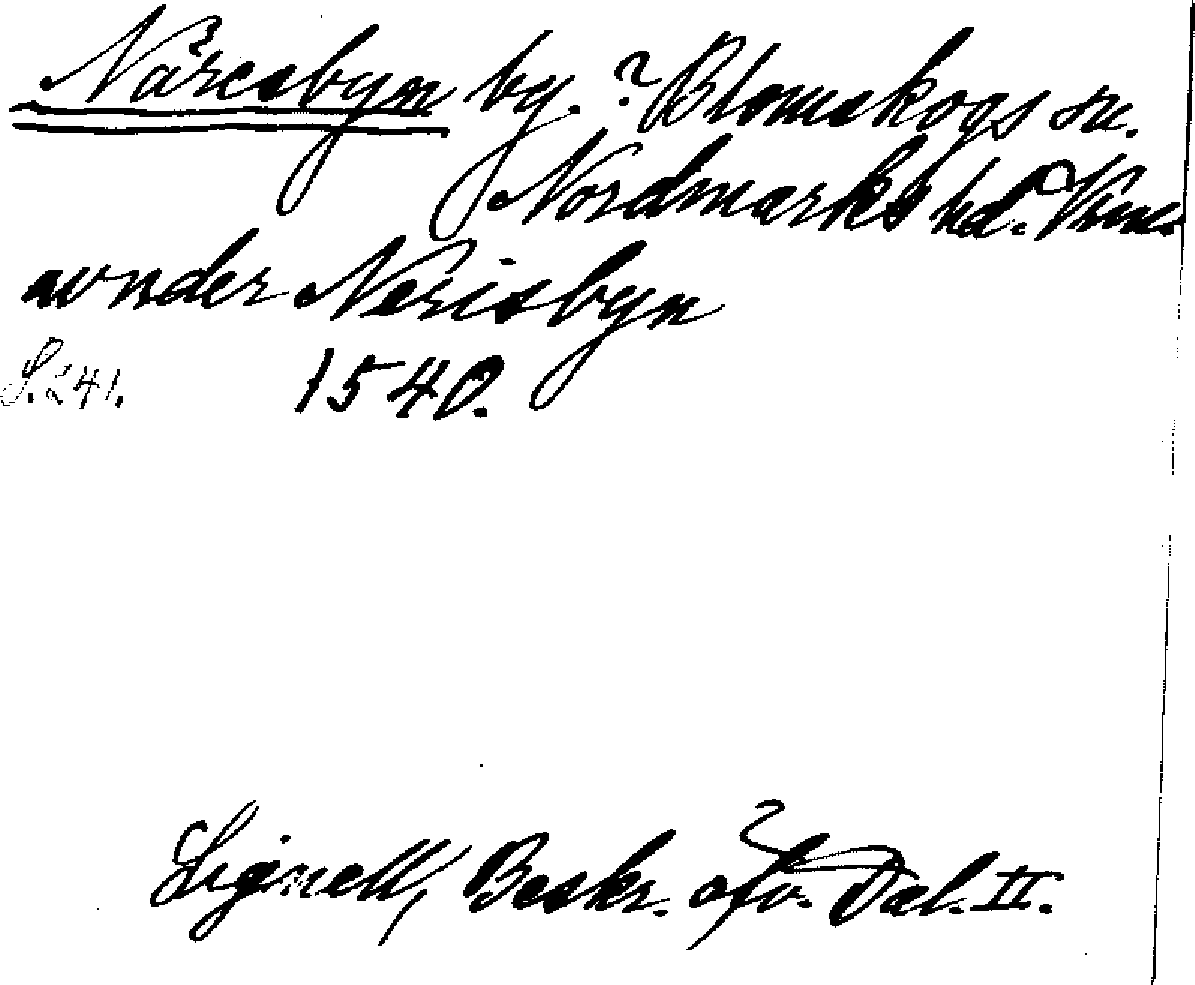 Näresbyn by. ? Blomskogs sn.
Nordmarks hd.
under Nerisbyn
S. 241. 1540.
Lignell, Beskr. öfv. Dal. II.